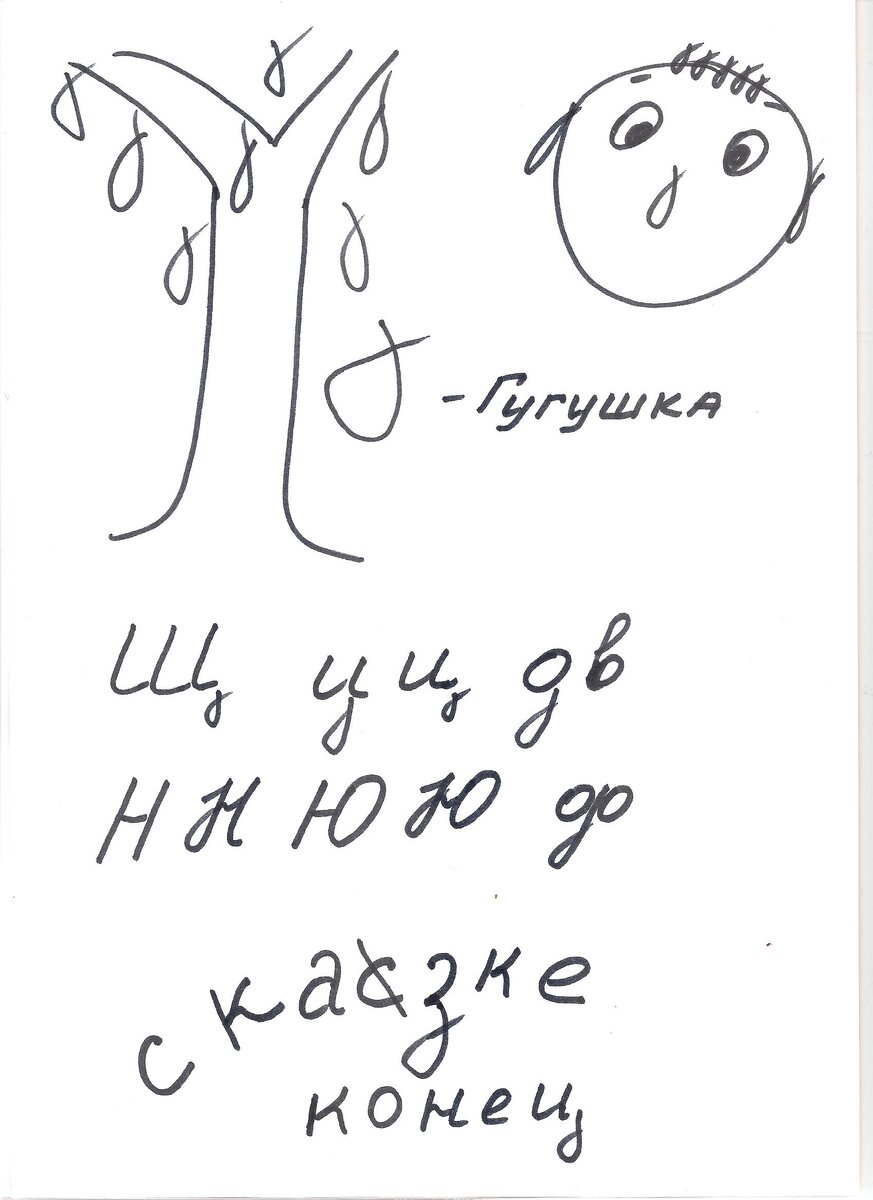 - Гугушка
Щ ц ц дв
Н Н Ю Ю до
сказке
конец